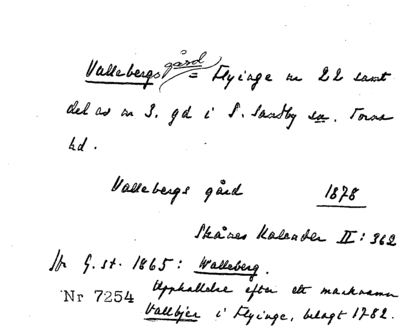 Vallebergs gård = Flyinge nr 22 samt
del av nr 3. gd i S. Sandby sn. Torna
hd.
Vallebergs gård 1878
Skånes Kalender II: 362
Jfr G.st. 1865: Walleberg.
Nr 7254 Uppkallelse efter ett marknamn
Vallbjer i Flyinge, belagt 1782.